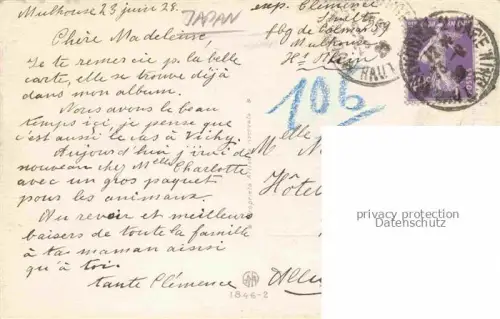 Mulhouse 23 juin 28.
JAPAN
Chère Madeleine,
Je te remercie p. la belle
carte, elle se trouve déjà
dans mon album.
Nous avons le beau
temps ici, je pense que
c'est aussi le cas à Vichy.
Aujourd'hui j'irai de
nouveau chez Melle Charlotte
avec un gros paquet
pour les animaux.
Au revoir et meilleurs
baisers de toute la famille
à ta maman ainsi
qu'à toi.
tante Clémence
1846-2
exp. Clémence
fbg de Colmar 59
Mulhouse
Ht Rhin
106
Melle
M
Hôte
Alle
privacy protection
Datenschutz